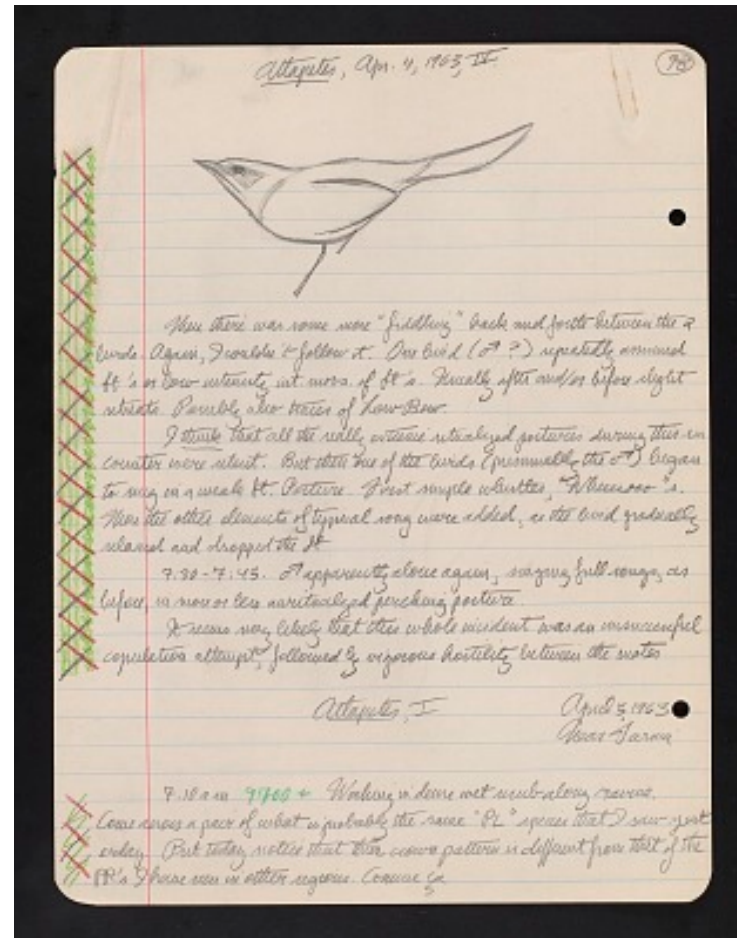 Atlapetes, Apr. 4, 1963, II
98
Then there was some more "fiddling" back and forth between the 2
birds. Again, I couldn't follow it. One bird (♂?) repeatedly assumed
ft's or low intensity int. movs. of ft's. Usually after and/or before slight
retreats. Possibly also traces of Low Bow.
I think that all the really extreme ritualized postures during this en-
counter were silent. But then one of the birds (presumably the ♂) began
to sing in a weak ft. Posture. First simple whistles, "Wheeeooo"s.
Then the other elements of typical song were added, as the bird gradually
relaxed and dropped the ft
7:30-7:45. ♂ apparently alone again, singing full songs, as
before, in more or less unritualized perching posture.
It seems very likely that this whole incident was an unsuccessful
copulation attempt, followed by vigorous hostility between the mates
Atlapetes, I
April 5, 1963
Near
7.10 a m 9700 ft Working in dense wet scrub along ravine.
Come across a pair of what is probably the same "PL" species that I saw yest
erday. But today notice that their crown pattern is different from that of the
PP's I have seen in other regions.